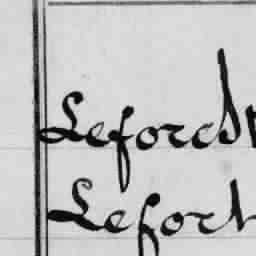 Leforest
Lefort